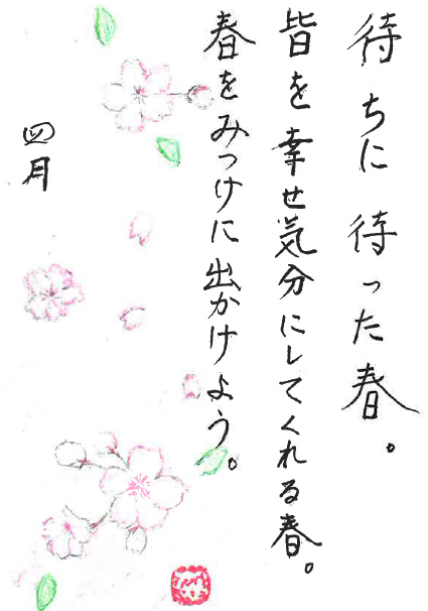 待ちに待った春。
皆を幸せ気分にしてくれる春。
春をみつけに出かけよう。
四月